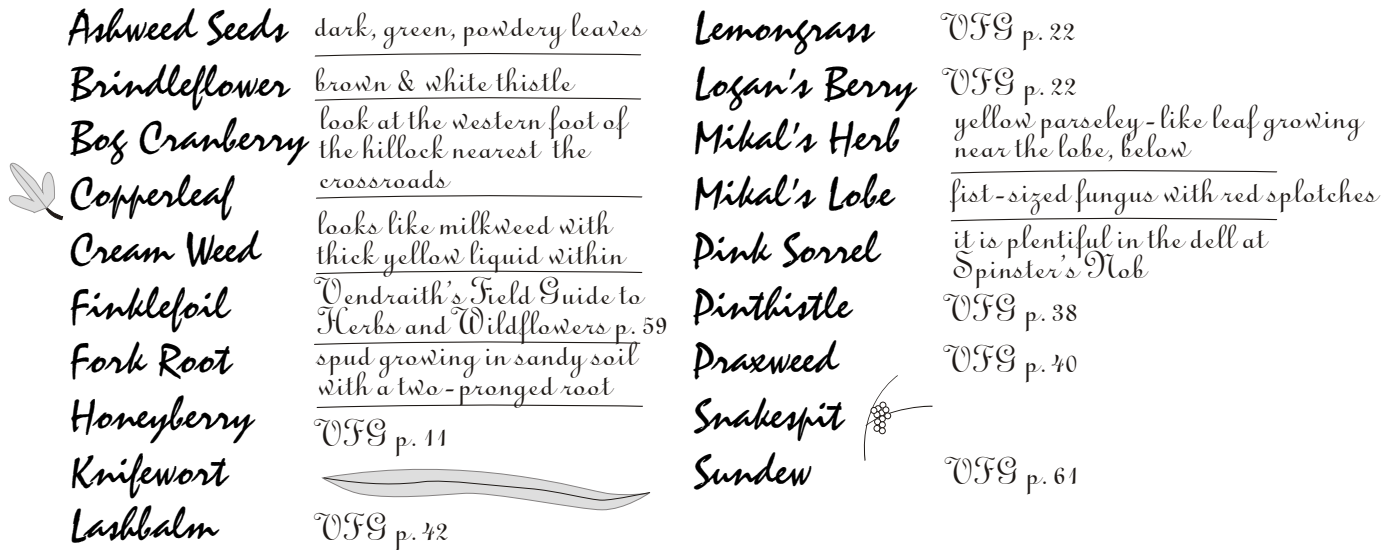 Ashweed Seeds dark, green, powdery leaves
Brindleflower brown & white thistle
Bog Cranberry look at the western foot of
the hillock nearest the
crossroads
Copperleaf
Cream Weed looks like milkweed with
thick yellow liquid within
Finklefoil Vendraith's Field Guide to
Herbs and Wildflowers p. 59
Fork Root spud growing in sandy soil
with a two-pronged root
Honeyberry VFG p. 11
Knifewort
Lashbalm VFG p. 42
Lemongrass VFG p. 22
Logan's Berry VFG p. 22
Mikal's Herb yellow parseley-like leaf growing
near the lobe, below
Mikal's Lobe fist-sized fungus with red splotches
Pink Sorrel it is plentiful in the dell at
Spinster's Nob
Pinthistle VFG p. 38
Praxweed VFG p. 40
Snakespit
Sundew VFG p. 61